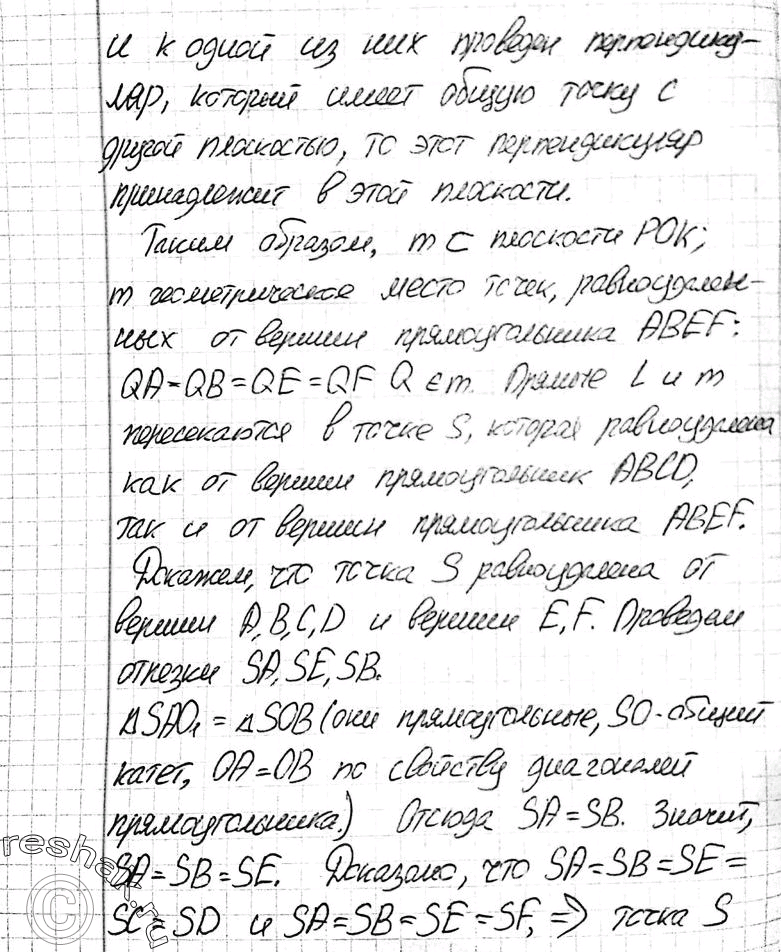 и к одной из них проведен перпендику-
ляр, который имеет общую точку с
другой плоскостью, то этот перпендикуляр
принадлежит в этой плоскости.
Таким образом, m ⊂ плоскости POK;
m геометрическое место точек, равноудален-
ных от вершин прямоугольника ABEF:
QA=QB=QE=QF Q ∈ m. Прямые L и m
пересекаются в точке S, которая равноудалена
как от вершин прямоугольник ABCD,
так и от вершин прямоугольника ABEF.
Докажем, что точка S равноудалена от
вершин A,B,C,D и вершин E,F. Проведем
отрезки SA, SE, SB.
△SAO₁ = △SOB (они прямоугольные, SO-общий
катет, OA=OB по свойству диагоналей
прямоугольника.) Отсюда SA=SB. Значит,
SA=SB=SE. Доказано, что SA=SB=SE=
SC=SD и SA=SB=SE=SF, ⇒ точка S
reshak.ru
©